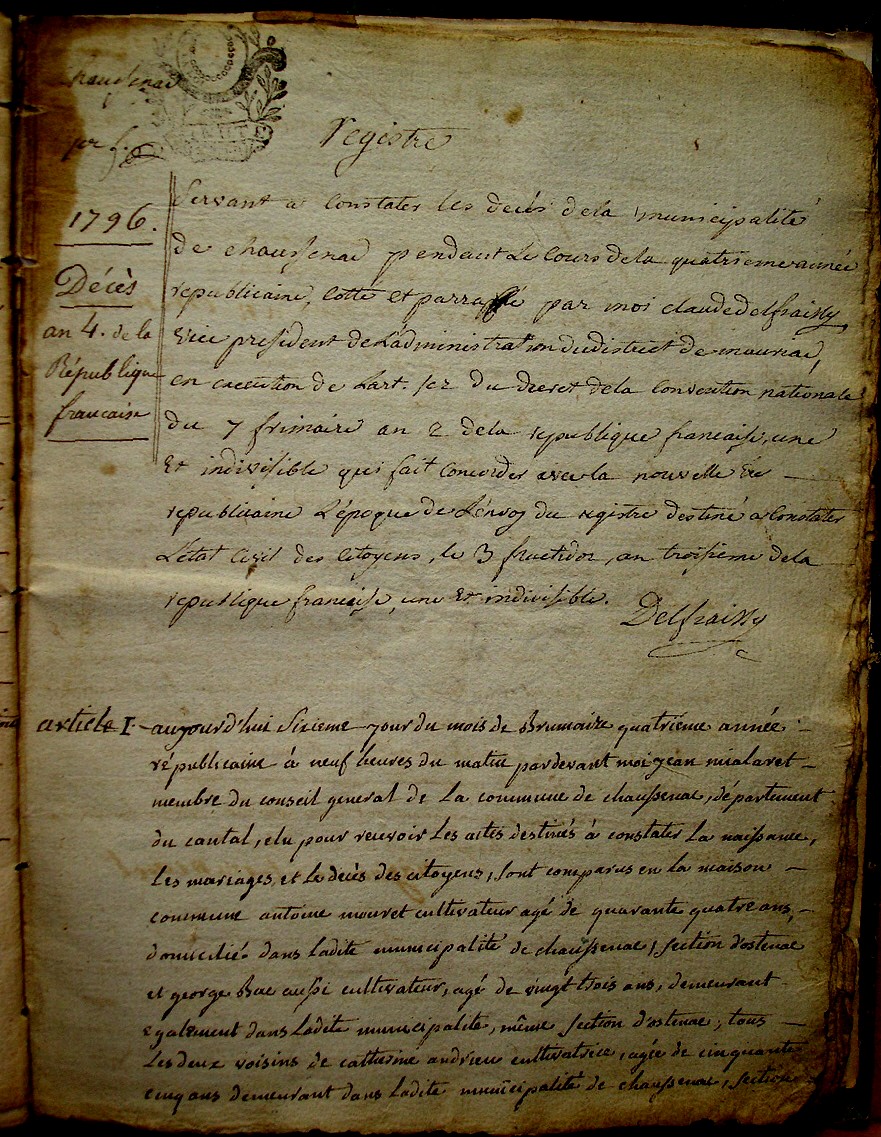 chaussenac
1796.
Décès
an 4. de la
République
francaise
registre
Servant a Constater les decés dela municipalité
de chaussenac pendant Le Cours dela quatrieme année
republicaine, Cotté et parraffé par moi claude delfraissy
vice président de L'administration du district de mauriac,
en execution de Lart. du decret dela Convention nationale
du 7 frimaire an 2 dela republique francaise, une
Et indivisible qui fait Concorder avec la nouvelle Ere
republicaine L'époque de L'envoy du registre destiné a Constater
L'état Civil des Citoyens, le 3 fructidor, an troisieme dela
republique francaise, une Et indivisible.
Delfraissy
article I. aujourd'hui Sixieme jour du mois de Brumaire quatriéme année
républicaine à neuf heures du matin pardevant moi jean mialaret
membre du conseil general de La commune de chaussenac, département
du cantal, elu pour recevoir Les actes destinés à constater La naissance,
Les mariages et Le décès des citoyens, sont comparus en La maison
commune antoine mouret cultivateur agé de quarante quatre ans,
domicilié dans Ladite municipalité de chaussenac, section d'ostenac
et george Bac aussi cultivateur, agé de vingt trois ans, demeurant
également dans Ladite municipalité, même section d'ostenac, tous
Les deux voisins de catherine andrieu cultivatrice, agée de cinquante
cinq ans demeurant dans Ladite municipalité de chaussenac, section